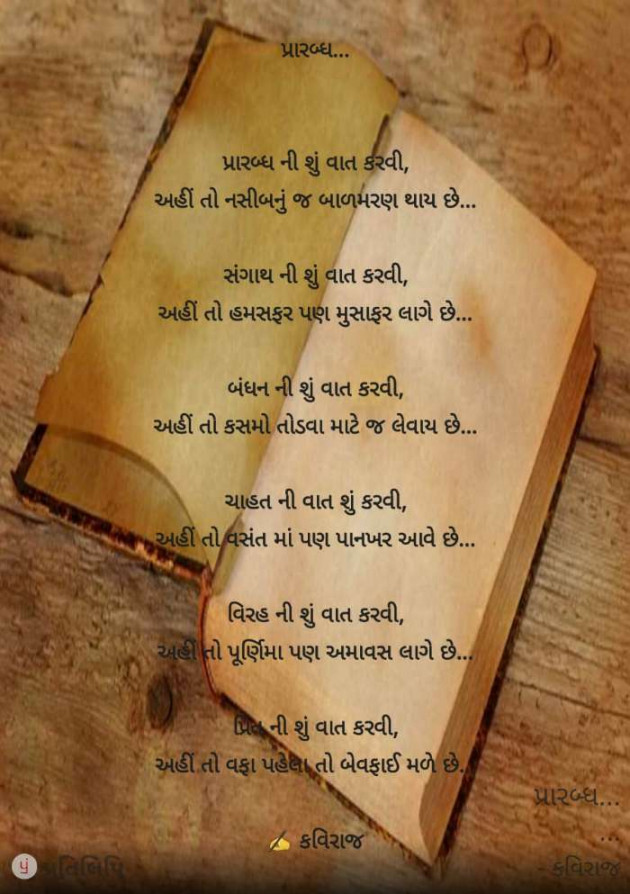 પ્રારબ્ધ...
પ્રારબ્ધ ની શું વાત કરવી,
અહીં તો નસીબનું જ બાળમરણ થાય છે...
સંગાથ ની શું વાત કરવી,
અહીં તો હમસફર પણ મુસાફર લાગે છે...
બંધન ની શું વાત કરવી,
અહીં તો કસમો તોડવા માટે જ લેવાય છે...
ચાહત ની વાત શું કરવી,
અહીં તો વસંત માં પણ પાનખર આવે છે...
વિરહ ની શું વાત કરવી,
અહીં તો પૂર્ણિમા પણ અમાવસ લાગે છે...
પ્રિત ની શું વાત કરવી,
અહીં તો વફા પહેલા તો બેવફાઈ મળે છે..
પ્રારબ્ધ...
...
✍️ કવિરાજ
પ્રતિલિપિ
કવિરાજ